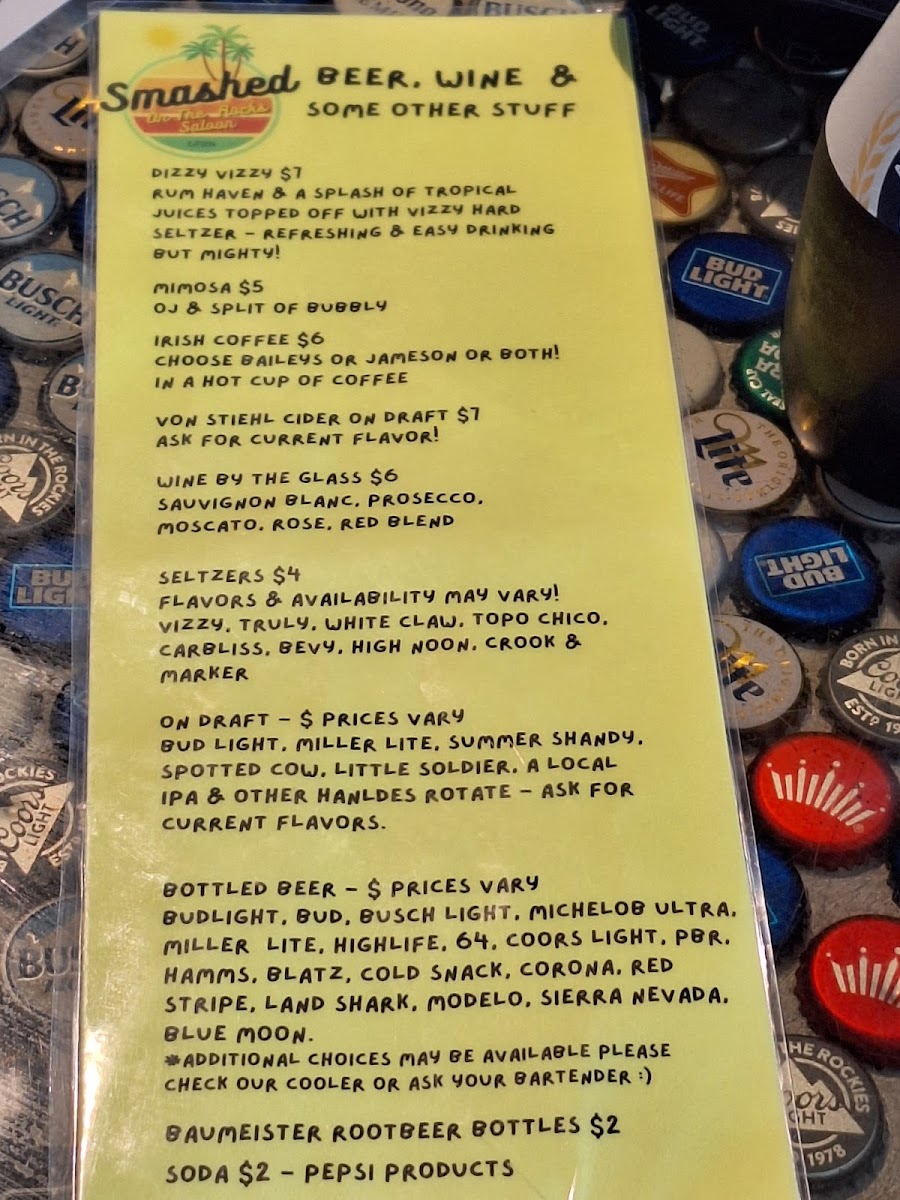 Smashed
On The Rocks
Saloon
BEER, WINE &
SOME OTHER STUFF
DIZZY VIZZY $7
RUM HAVEN & A SPLASH OF TROPICAL
JUICES TOPPED OFF WITH VIZZY HARD
SELTZER - REFRESHING & EASY DRINKING
BUT MIGHTY!
MIMOSA $5
OJ & SPLIT OF BUBBLY
IRISH COFFEE $6
CHOOSE BAILEYS OR JAMESON OR BOTH!
IN A HOT CUP OF COFFEE
VON STIEHL CIDER ON DRAFT $7
ASK FOR CURRENT FLAVOR!
WINE BY THE GLASS $6
SAUVIGNON BLANC, PROSECCO,
MOSCATO, ROSE, RED BLEND
SELTZERS $4
FLAVORS & AVAILABILITY MAY VARY!
VIZZY, TRULY, WHITE CLAW, TOPO CHICO,
CARBLISS, BEVY, HIGH NOON, CROOK &
MARKER
ON DRAFT - $ PRICES VARY
BUD LIGHT, MILLER LITE, SUMMER SHANDY,
SPOTTED COW, LITTLE SOLDIER, A LOCAL
IPA & OTHER HANLDES ROTATE - ASK FOR
CURRENT FLAVORS.
BOTTLED BEER - $ PRICES VARY
BUDLIGHT, BUD, BUSCH LIGHT, MICHELOB ULTRA,
MILLER LITE, HIGHLIFE, 64, COORS LIGHT, PBR,
HAMMS, BLATZ, COLD SNACK, CORONA, RED
STRIPE, LAND SHARK, MODELO, SIERRA NEVADA,
BLUE MOON.
*ADDITIONAL CHOICES MAY BE AVAILABLE PLEASE
CHECK OUR COOLER OR ASK YOUR BARTENDER :)
BAUMEISTER ROOTBEER BOTTLES $2
SODA $2 - PEPSI PRODUCTS
BUSCH
BUD
LIGHT
BUSCH
LIGHT
BUD
LIGHT
Lite
BORN IN THE ROCKIES
Coors
BUD
LIGHT
BORN IN
LIGHT
ESTD 19
ROCKIES
Coors
LIGHT
THE ROCKIES
1978